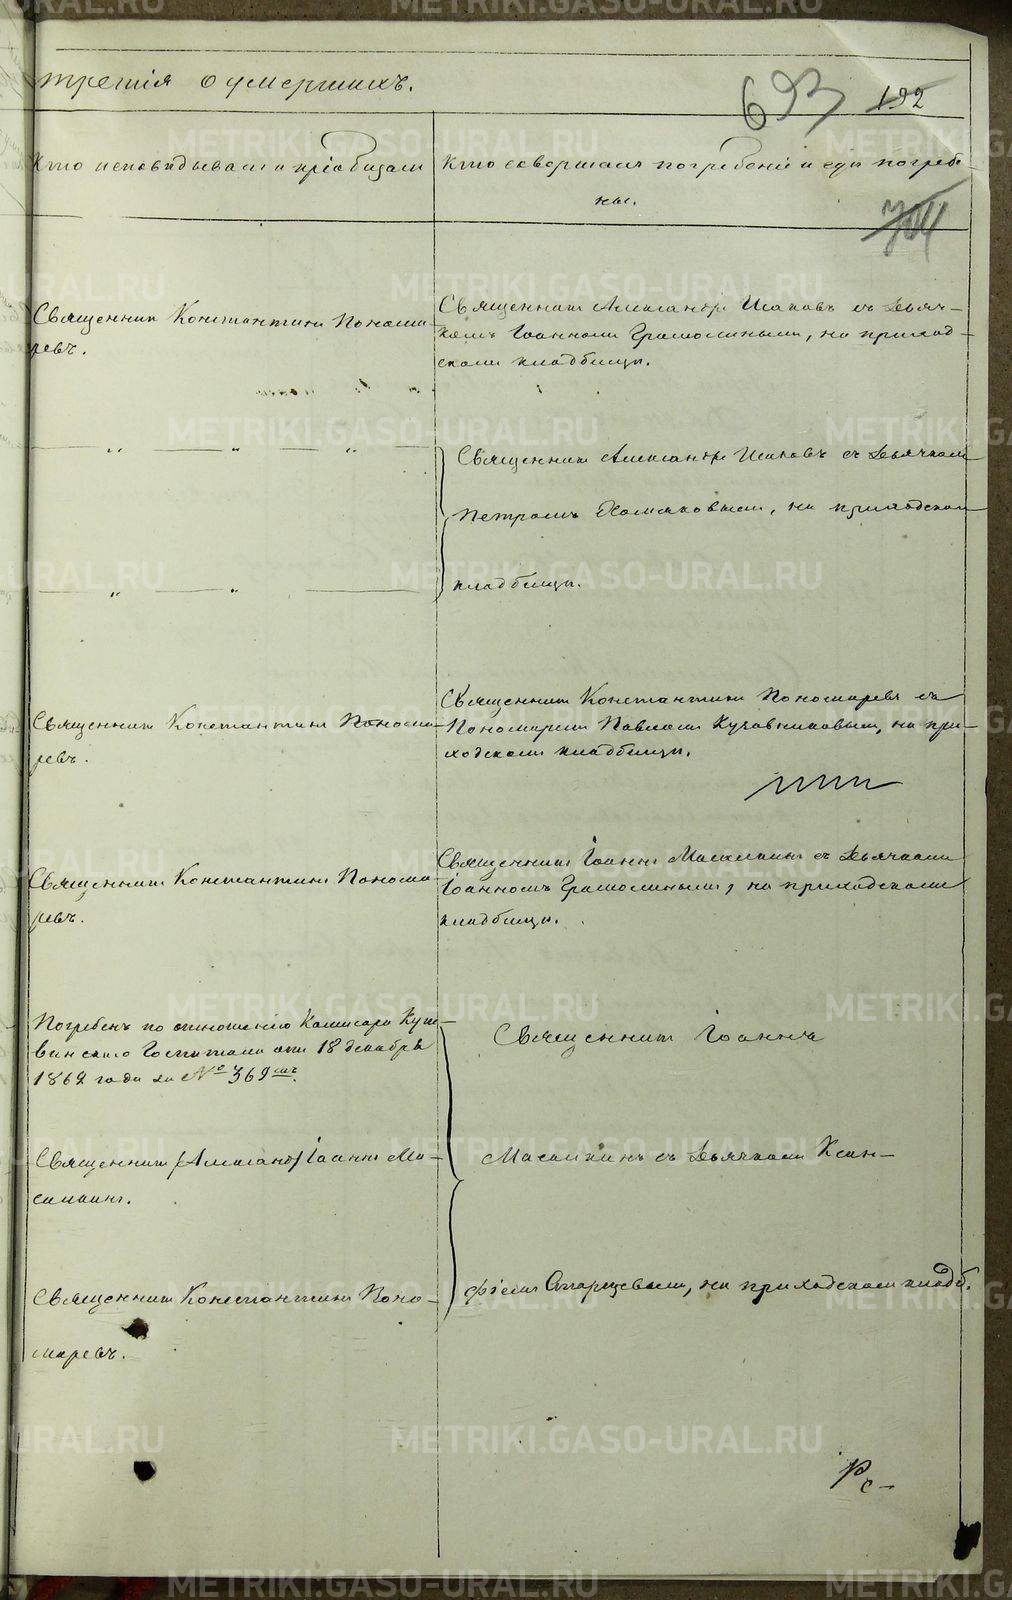 третія о умершихъ.
693 192
Кто исповѣдывалъ и пріобщалъ
Кто совершалъ погребеніе и гдѣ погребе
ны.
704
Священникъ Константинъ Понома-
ревъ.
Священникъ Александръ Исаковъ съ Дьяч-
комъ Іоанномъ Грамолинымъ, на приход-
скомъ кладбищѣ.
— „ — „ — „ —
Священникъ Александръ Исаковъ съ Дьячкомъ
Петромъ Хомяковымъ, на приходскомъ
— „ — „ —
кладбищѣ.
Священникъ Константинъ Понома-
ревъ.
Священникъ Константинъ Пономаревъ съ
Пономаремъ Павломъ на при-
ходскомъ кладбищѣ.
Священникъ Константинъ Понома-
ревъ.
Священникъ Іоаннъ Масалкинъ съ Дьячкомъ
Іоанномъ Грамолинымъ, на приходскомъ
кладбищѣ.
Погребенъ по отношенію Комисара Куш-
винскаго Госпиталя отъ 18 декабря
1862 года за № 369
Священникъ Іоаннъ
Священникъ (Александ) Іоаннъ Ма-
салкинъ.
Масалкинъ съ Дьячкомъ Ксен-
Священникъ Константинъ Поно-
маревъ.
фіемъ Старцевымъ, на приходскомъ кладб.
METRIKI.GASO-URAL.RU